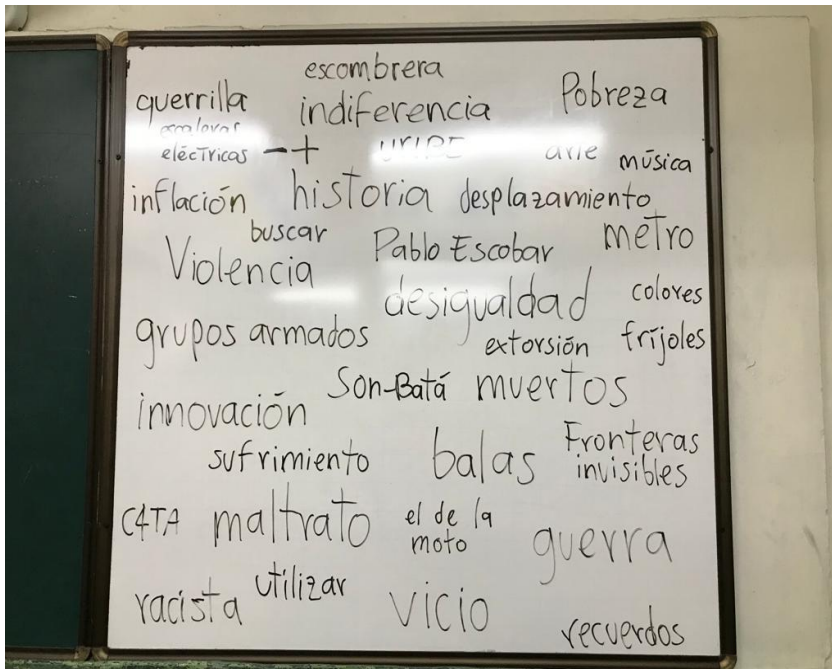 escombrera
guerrilla
indiferencia
Pobreza
escaleras
eléctricas - +
URIBE
arte
música
inflación
historia
desplazamiento
buscar
Violencia
Pablo Escobar
metro
desigualdad
colores
grupos armados
extorsión
fríjoles
innovación
Son-Batá
muertos
sufrimiento
balas
Fronteras
invisibles
C4TA
maltrato
el de la
moto
guerra
racista
utilizar
vicio
recuerdos